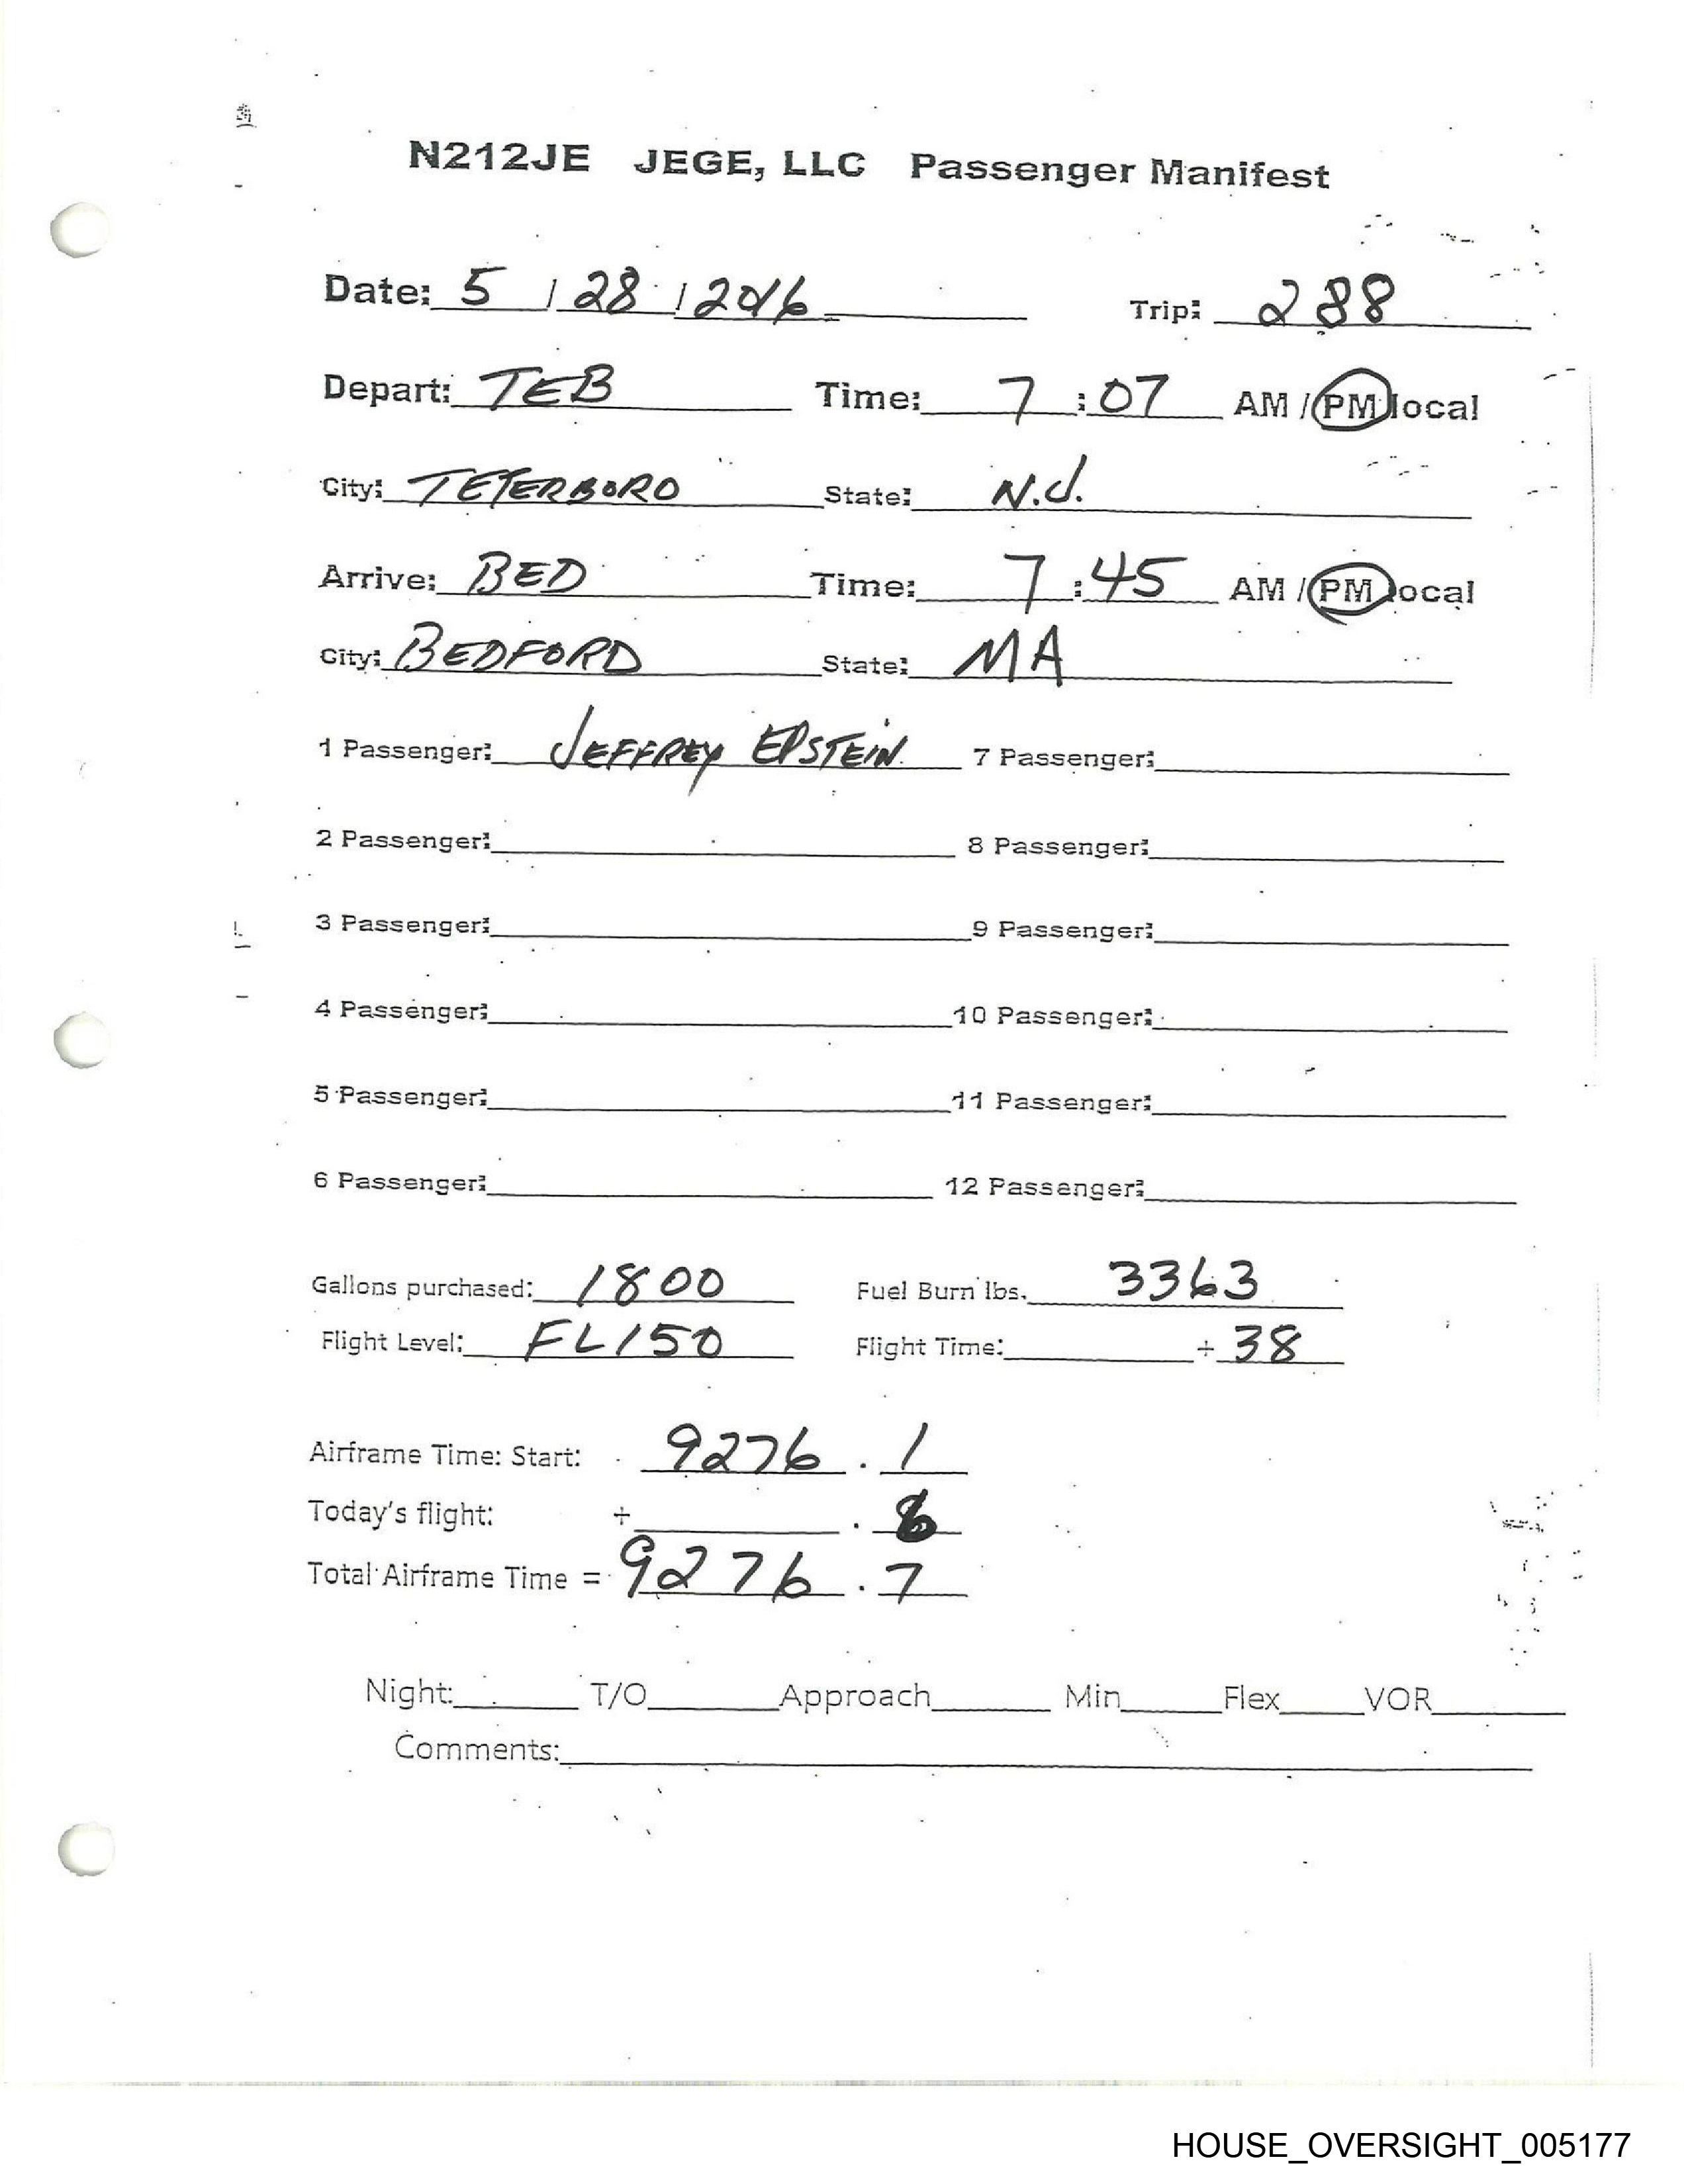 N212JE JEGE, LLC Passenger Manifest
Date: 5 / 28 / 2016 Trip: 288
Depart: TEB Time: 7 : 07 AM / PM local
City: TETERBORO State: N.J.
Arrive: BED Time: 7 : 45 AM / PM local
City: BEDFORD State: MA
1 Passenger: JEFFREY EPSTEIN 7 Passenger:
2 Passenger: 8 Passenger:
3 Passenger: 9 Passenger:
4 Passenger: 10 Passenger:
5 Passenger: 11 Passenger:
6 Passenger: 12 Passenger:
Gallons purchased: 1800 Fuel Burn lbs. 3363
Flight Level: FL150 Flight Time: + 38
Airframe Time: Start: 9276 . 1
Today's flight: + . 6
Total Airframe Time = 9276 . 7
Night: T/O Approach Min Flex VOR
Comments:
HOUSE_OVERSIGHT_005177